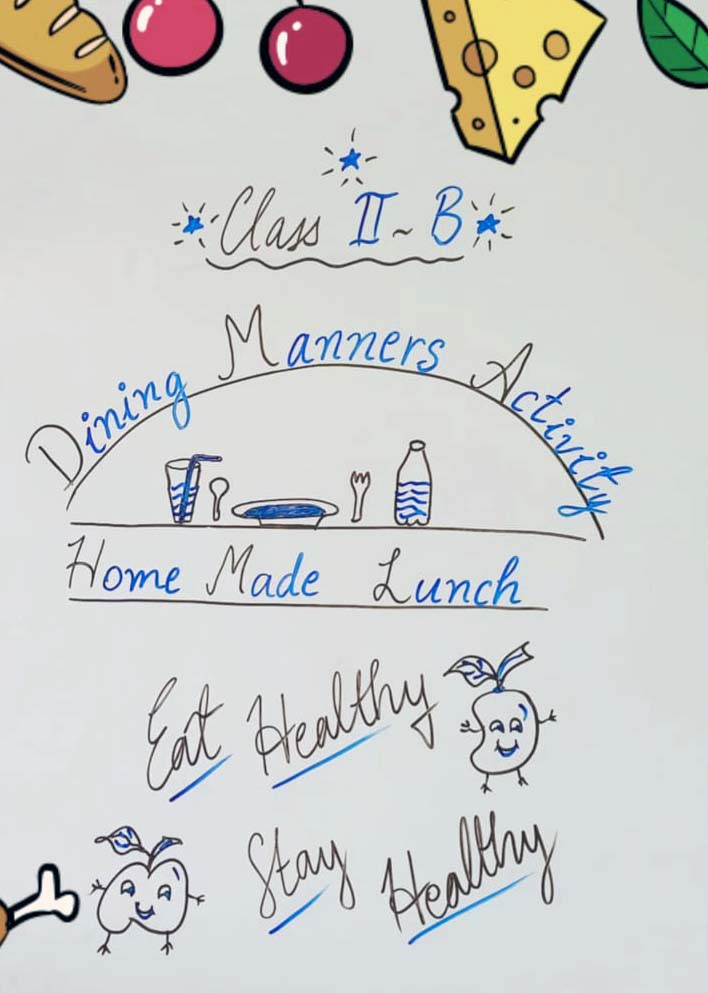 Class II ~ B
Dining Manners Activity
Home Made Lunch
Eat Healthy
Stay Healthy